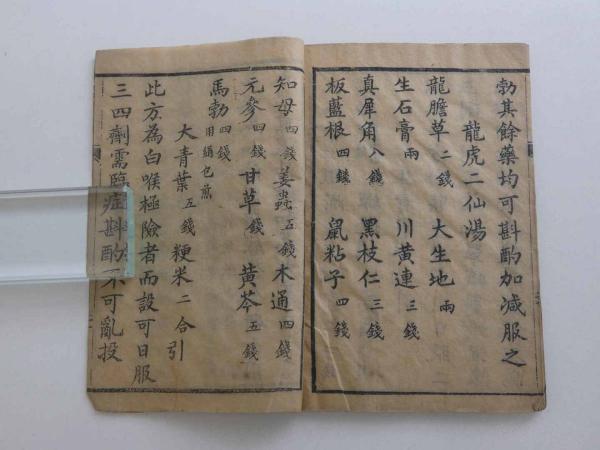 勃其餘藥均可斟酌加減服之
龍虎二仙湯
龍膽草二錢 大生地兩
生石膏兩 川黃連三錢
真犀角八錢 黑枝仁三錢
板藍根四錢 鼠粘子四錢
知母四錢 姜蟲五錢 木通四錢
元參四錢 甘草錢 黃芩五錢
馬勃四錢用絹包煎
大青葉五錢 粳米二合引
此方為白喉極險者而設可日服
三四劑需臨症斟酌不可亂投